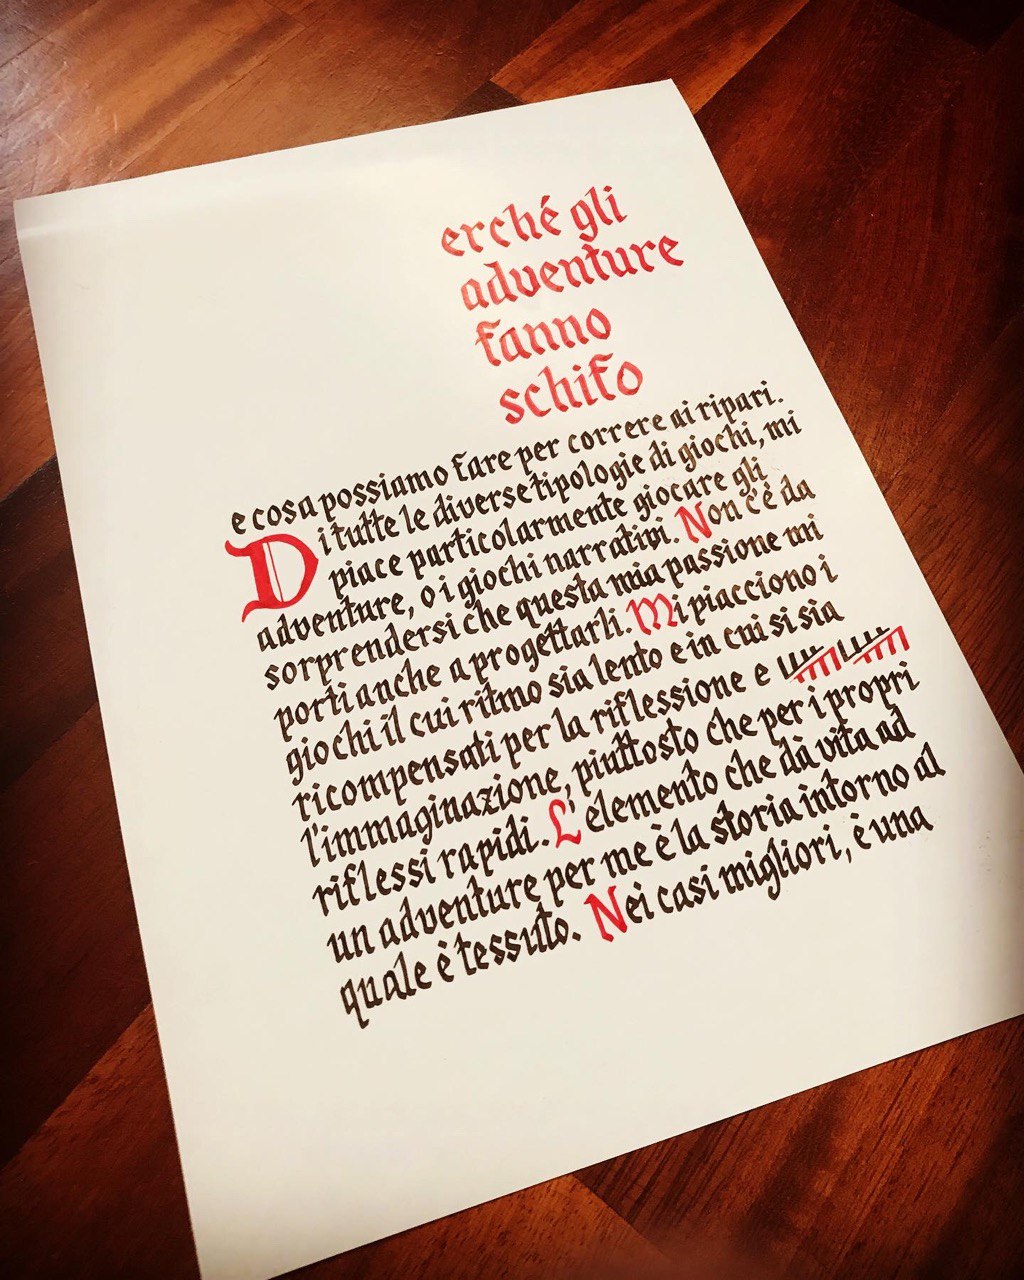 erché gli
adventure
fanno
schifo
e cosa possiamo fare per correre ai ripari.
Di tutte le diverse tipologie di giochi, mi
piace particolarmente giocare gli
adventure, o i giochi narrativi. Non c'è da
sorprendersi che questa mia passione mi
porti anche a progettarli. Mi piacciono i
giochi il cui ritmo sia lento e in cui si sia
ricompensati per la riflessione e
l'immaginazione, piuttosto che per i propri
riflessi rapidi. L'elemento che dà vita ad
un adventure per me è la storia intorno al
quale è tessuto. Nei casi migliori, è una